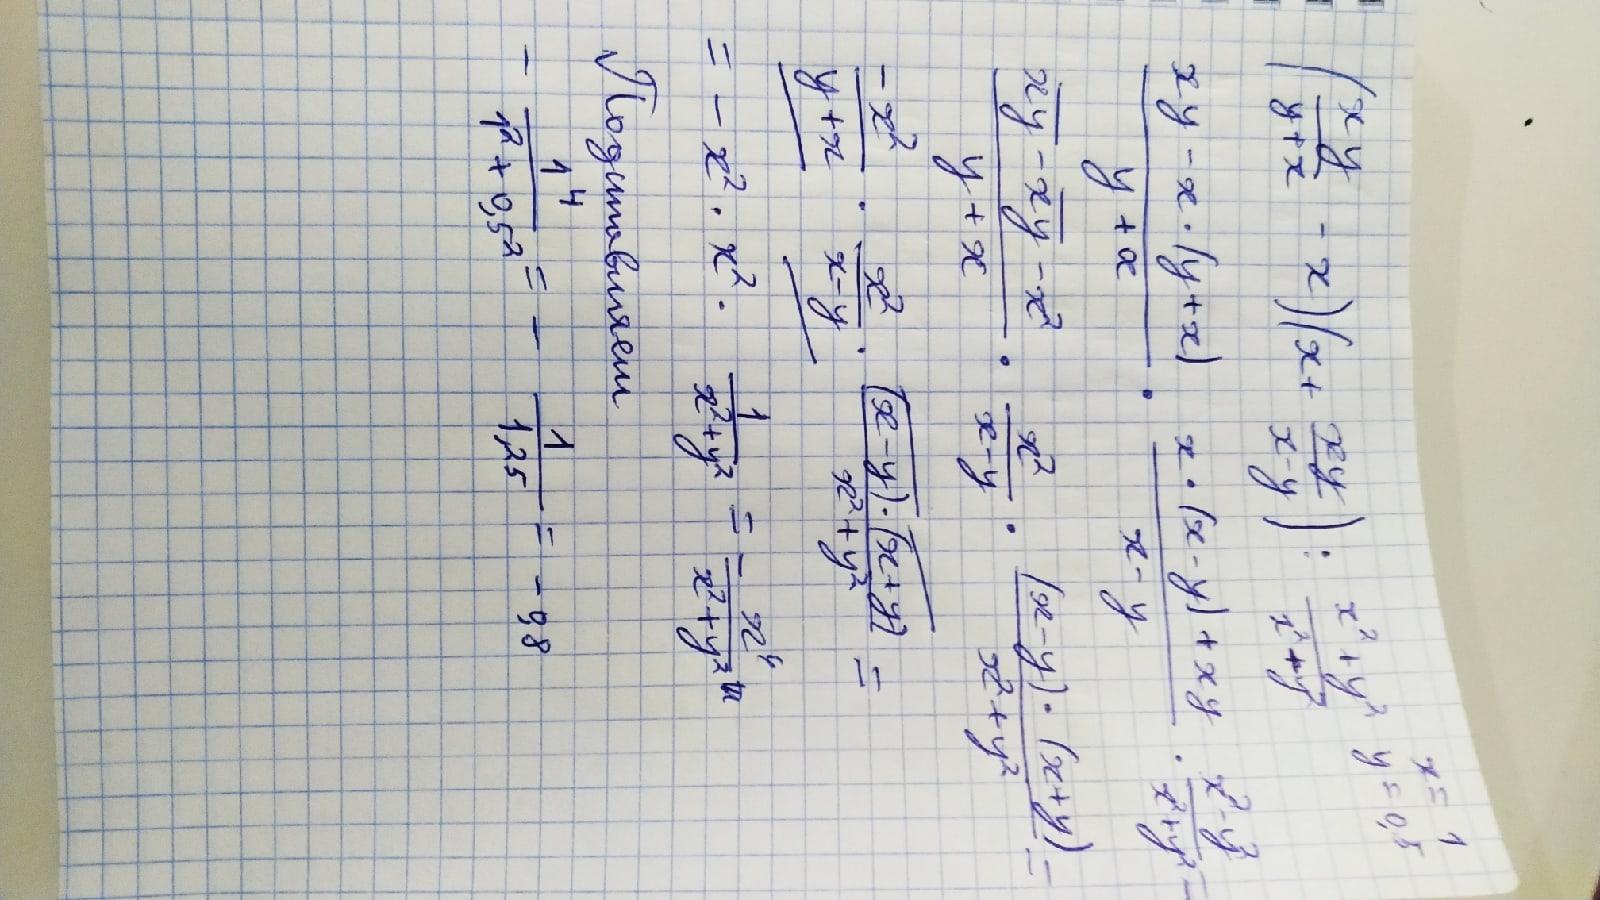 x = 1
y = 0,5
(xy/(y+x) - x)(x + xy/(x-y)) : (x²+y²)/(x²+y²)
(xy - x·(y+x))/(y+x) · (x·(x-y)+xy)/(x-y) · (x²-y²)/(x²+y²) =
(xy - xy - x²)/(y+x) · x²/(x-y) · ((x-y)·(x+y))/(x²+y²) =
-x²/(y+x) · x²/(x-y) · ((x-y)·(x+y))/(x²+y²) =
= -x² · x² · 1/(x²+y²) = -x⁴/(x²+y²)
Подставляем
- 1⁴/(1²+0,5²) = - 1/1,25 = -0,8